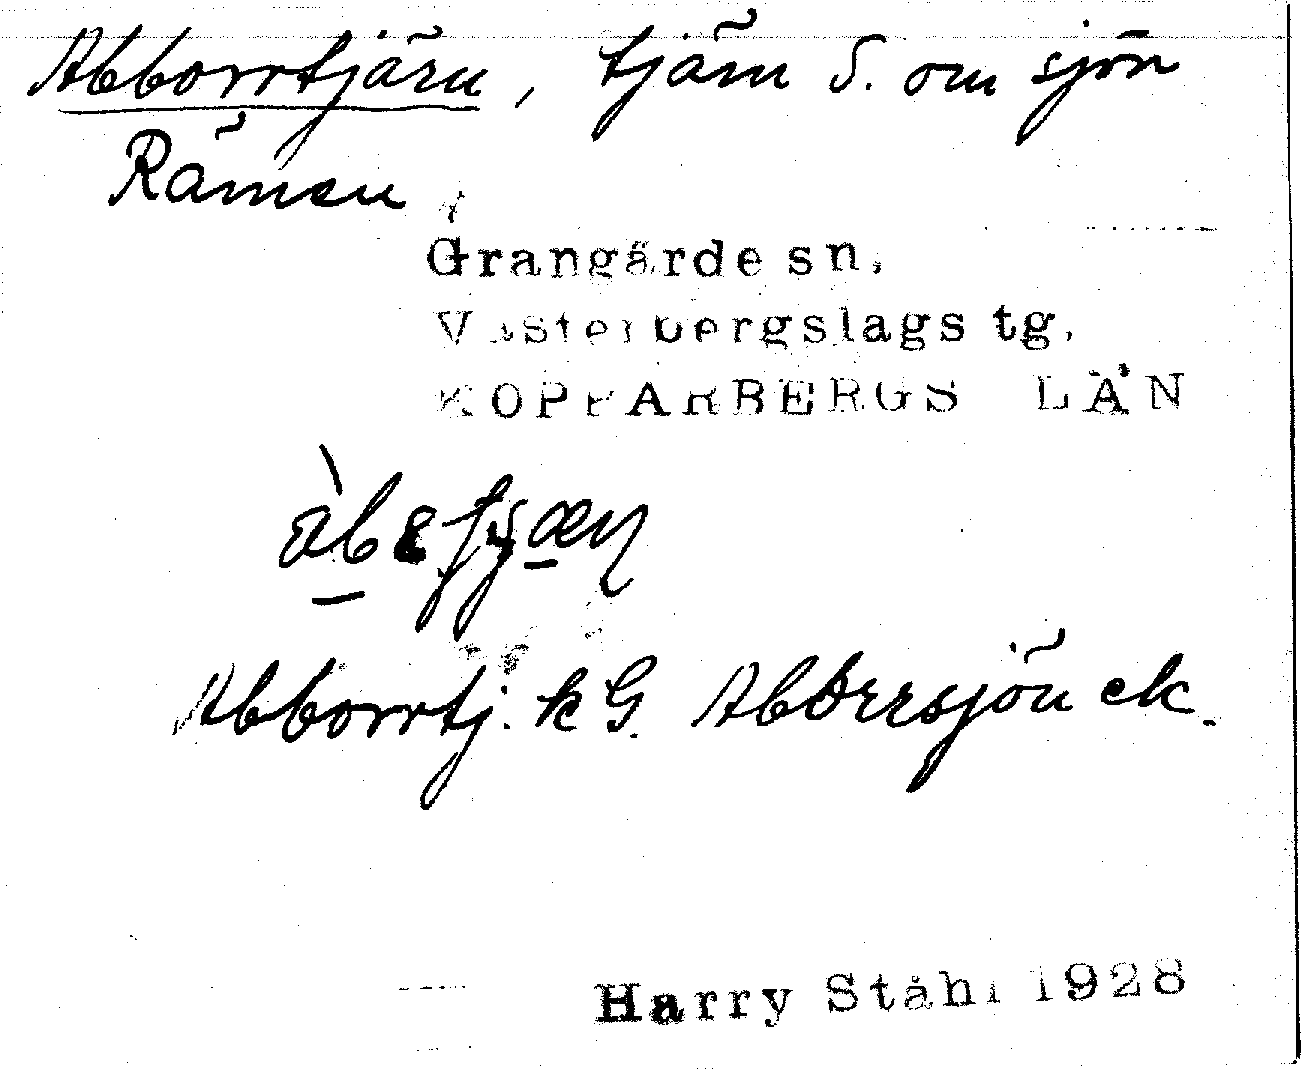 Abborrtjärn, tjärn S. om sjön
Råmen
Grangärde sn,
Västerbergslags tg,
KOPPARBERGS LÄN
Abborrtj. k G. Abborrsjön ek.
Harry Ståhl 1928